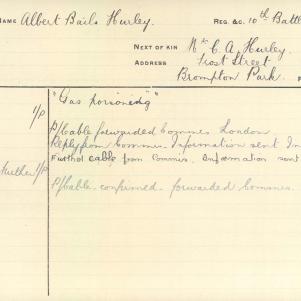 NAME Albert Bails Hurley. REG. &c. 10th Battl
NEXT OF KIN Mr C. A. Hurley.
ADDRESS Frost Street
Brompton Park.
1/p "Gas poisoning"
P/Cable forwarded Commes London
Reply from Commes. Information sent In
Further cable from Commis. Information sent
Further 1/p P/Cable confirmed forwarded Commes.